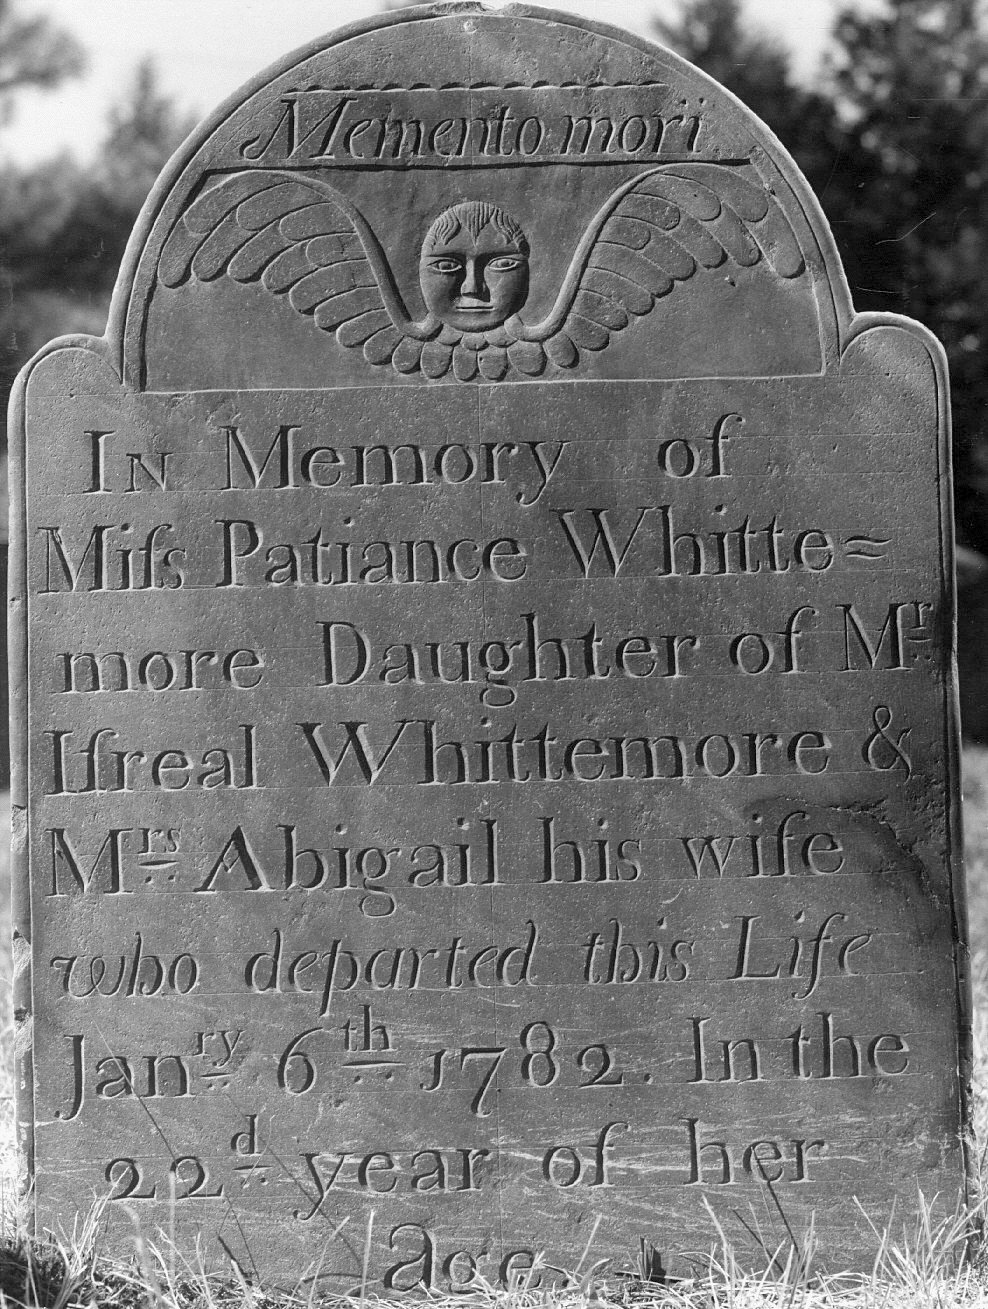 Memento mori
In Memory of
Miſs Patiance Whitte=
more Daughter of Mr
Iſreal Whittemore &
Mrs Abigail his wife
who departed this Life
Janry 6th 1782. In the
22d year of her
age.